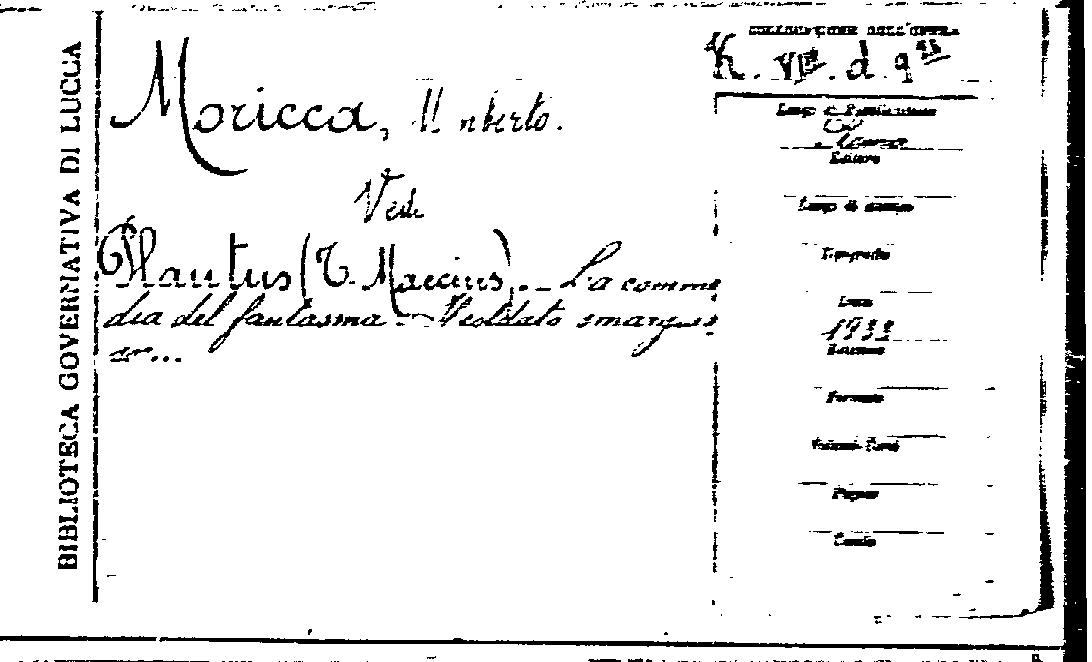 BIBLIOTECA GOVERNATIVA DI LUCCA
Moricca, Umberto.
Vedi
Plautus (T. Maccius). - La comme
dia del fantasma. - Il soldato smargias
so...
COLLOCAZIONE DELL'OPERA
K. VIII. d. 9
Luogo di Pubblicazione
Editore
Luogo di stampa
Tipografia
Data
1933
Edizione
Formato
Volumi-Tomi
Pagine